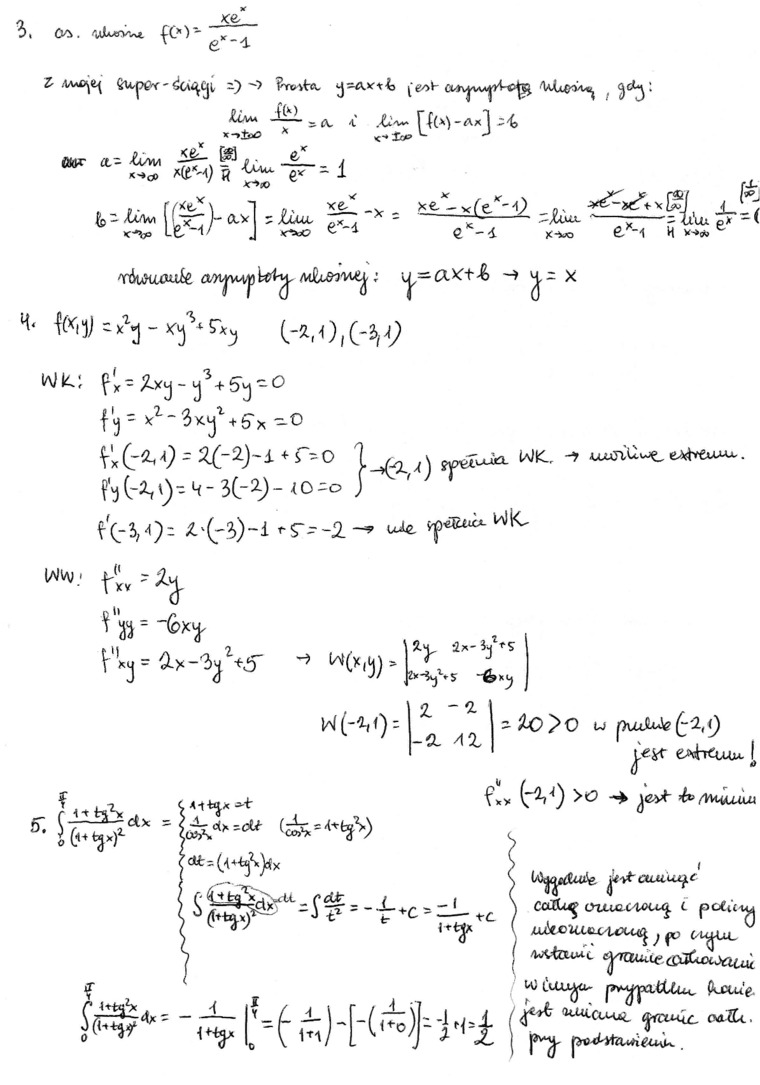 3. as. ukośne f(x) = xeˣ/(eˣ-1)
z mojej super-ściągi => → Prosta y=ax+b jest asymptotą ukośną, gdy:
lim x→±∞ f(x)/x = a i lim x→±∞ [f(x)-ax] = b
a = lim x→∞ xeˣ/(x(eˣ-1)) [∞/∞] =H lim x→∞ eˣ/eˣ = 1
b = lim x→∞ [(xeˣ/(eˣ-1)) - ax] = lim x→∞ xeˣ/(eˣ-1) - x = (xeˣ - x(eˣ-1))/(eˣ-1) = lim x→∞ (xeˣ - xeˣ + x)/(eˣ-1) [∞/∞] =H lim x→∞ 1/eˣ [1/∞] =
równanie asymptoty ukośnej: y=ax+b → y=x
4. f(x,y) = x²y - xy³ + 5xy (-2,1), (-3,1)
WK: f'x = 2xy - y³ + 5y = 0
f'y = x² - 3xy² + 5x = 0
f'x(-2,1) = 2(-2) - 1 + 5 = 0
f'y(-2,1) = 4 - 3(-2) - 10 = 0 } → (-2,1) spełnia WK. → możliwe extremu.
f'(-3,1) = 2·(-3) - 1 + 5 = -2 → nie spełnia WK
WW: f''xx = 2y
f''yy = -6xy
f''xy = 2x - 3y² + 5 → W(x,y) = |2y 2x-3y²+5|
|2x-3y²+5 -6xy|
W(-2,1) = |2 -2| = 20 > 0 w punkcie (-2,1)
|-2 12| jest extremu!
f''xx(-2,1) > 0 → jest to minimu
5. ∫₀^(π/4) (1+tg²x)/(1+tgx)² dx = 1+tgx = t
1/cos²x dx = dt (1/cos²x = 1+tg²x)
dt = (1+tg²x)dx
∫ (1+tg²x)/(1+tgx)² dx dt = ∫ dt/t² = -1/t + c = -1/(1+tgx) + c
Wygodnie jest
całkę oznaczoną i policzyć
nieoznaczoną, po czym
wstawić granice całkowania
w innym przypadku
jest zmiana granic całk.
przy podstawieniu.
∫₀^(π/4) (1+tg²x)/(1+tgx)² dx = -1/(1+tgx) |₀^(π/4) = (-1/(1+1)) - [-(1/(1+0))] = -1/2 + 1 = 1/2